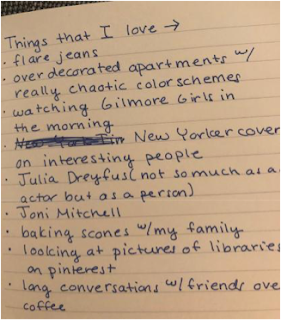 Things that I love →
· flare jeans
· over decorated apartments w/
really chaotic color schemes
· watching Gilmore Girls in
the morning
· New Yorker cover
on interesting people
· Julia Dreyfus (not so much as a
actor but as a person)
· Joni Mitchell
· baking scones w/my family
· looking at pictures of libraries
on pinterest
· long conversations w/friends ove
coffee